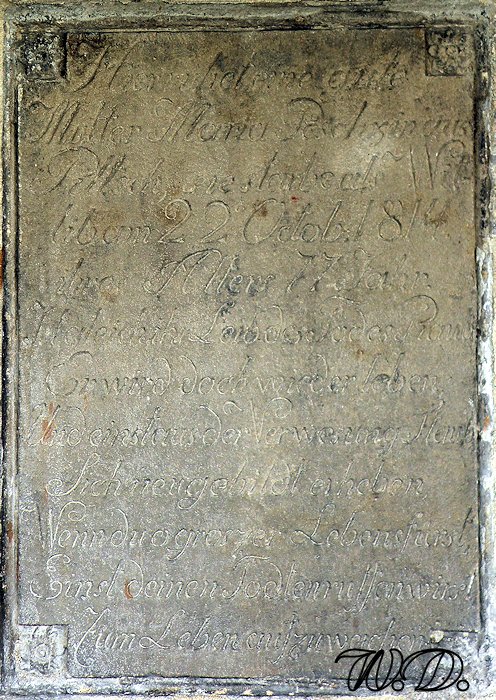 Hier ruhet eine gute
Mutter Maria Peschgin aus
sie starb als Wit
tib am 22 Octob. 1814.
ihres Alters 77 Jahr.
Ob gleich ihr Leib des Todes Raub
Er wird doch wieder leben,
Und einst aus der Verwesung Staub
Sich neugebildt erheben,
Wenn du o groszer Lebensfürst,
Einst deinen Todten ruffen wirst
Zum Leben aufzuwachen
W.D.